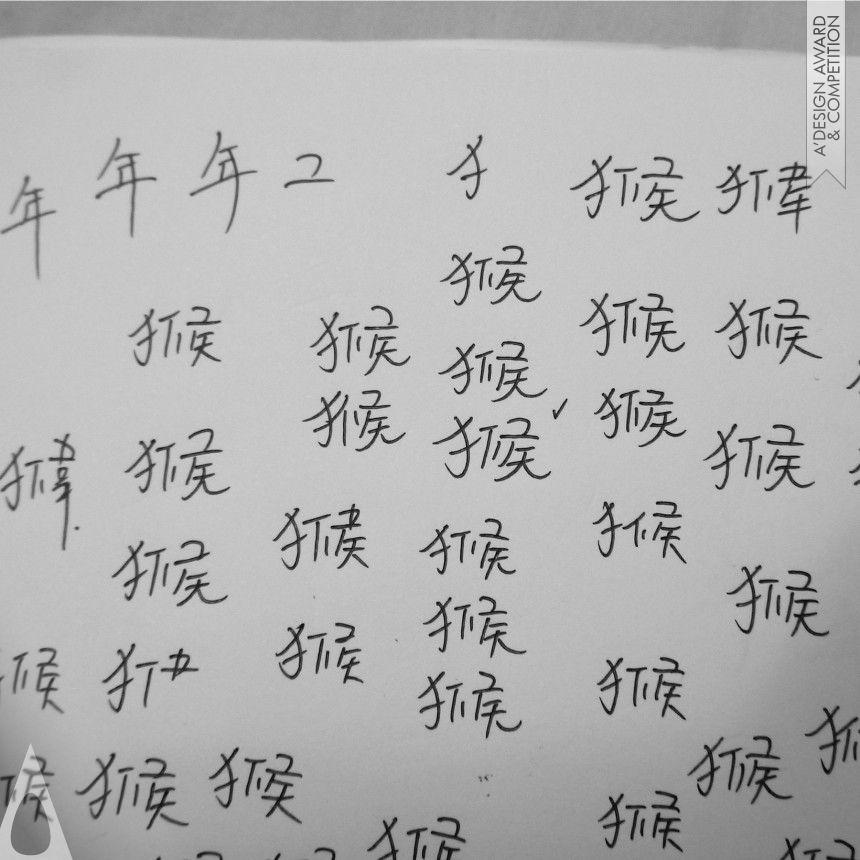 A' DESIGN AWARD
& COMPETITION
年 年 年 犭 猴
猴
猴 猴 猴 猴
猴
猴 猴 ✓ 猴
猴 猴
猴 猴
猴 猴
猴
猴 猴 猴
猴
猴 猴 猴
猴